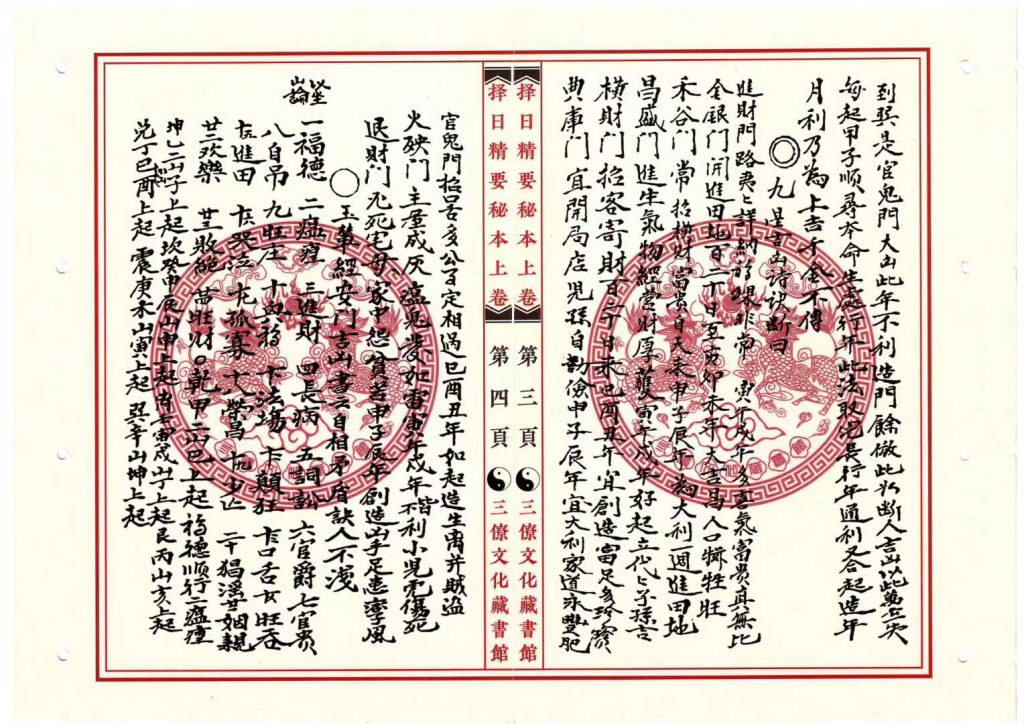 到巽是官鬼門大凶此年不利造門餘倣此斷人吉凶萬無失
每起甲子順尋本命生處行年此法取宅長行年通利合起造年
月利乃為上吉千金不傳
◎ 九星吉凶詩訣斷曰
進財門路夷々詳納福綠非常 寅午戌年多喜氣富貴真無比
金銀門開進田地百二十日至亥卯未年大吉昌人口犧牲旺
禾谷門 常招横財富貴日天表申子辰年大利週進田地
昌盛門 進生氣物經營財厚獲寅午戌年好起立代々子孫言
横財門 招客寄財百二十日來巳酉丑年宜創造富足多珍寳
典庫門 宜開局店児孫自勤儉申子辰年宜大利家道永豐肥
择日精要秘本上卷
第三頁
三僚文化藏書館
择日精要秘本上卷
第四頁
三僚文化藏書館
官鬼門招口舌多公事定相遇巳酉丑年如起造生离并賊盗
火殃門 主屋成灰瘟鬼入如雷寅午戌年皆不利小児虎傷死
退財門 尤死宅母家中怨貧苦申子辰年創造凶手足患瘋風
○ 玉輦經安門吉凶書云自相矛盾訣人不淺
坐山論
一福德 二瘟𤺄 三進財 四長病 五詞訟 六官爵 七官貴
八自吊 九旺庄 十興福 十一法場 十二顛狂 十三口舌 十四旺蚕
十五進田 十六哭泣 十七孤寡 十八榮昌 十九少亡 二十猖淫 廿一姻親
廿二欢樂 廿三敗絕 廿四旺財○乾甲二山巳上起福德順行二瘟𤺄
坤乙二山子上起坎癸申辰山申上起离壬寅戌山上起艮丙山亥上起
兑丁巳丑酉上起 震庚亥未山寅上起 巽辛山坤上起